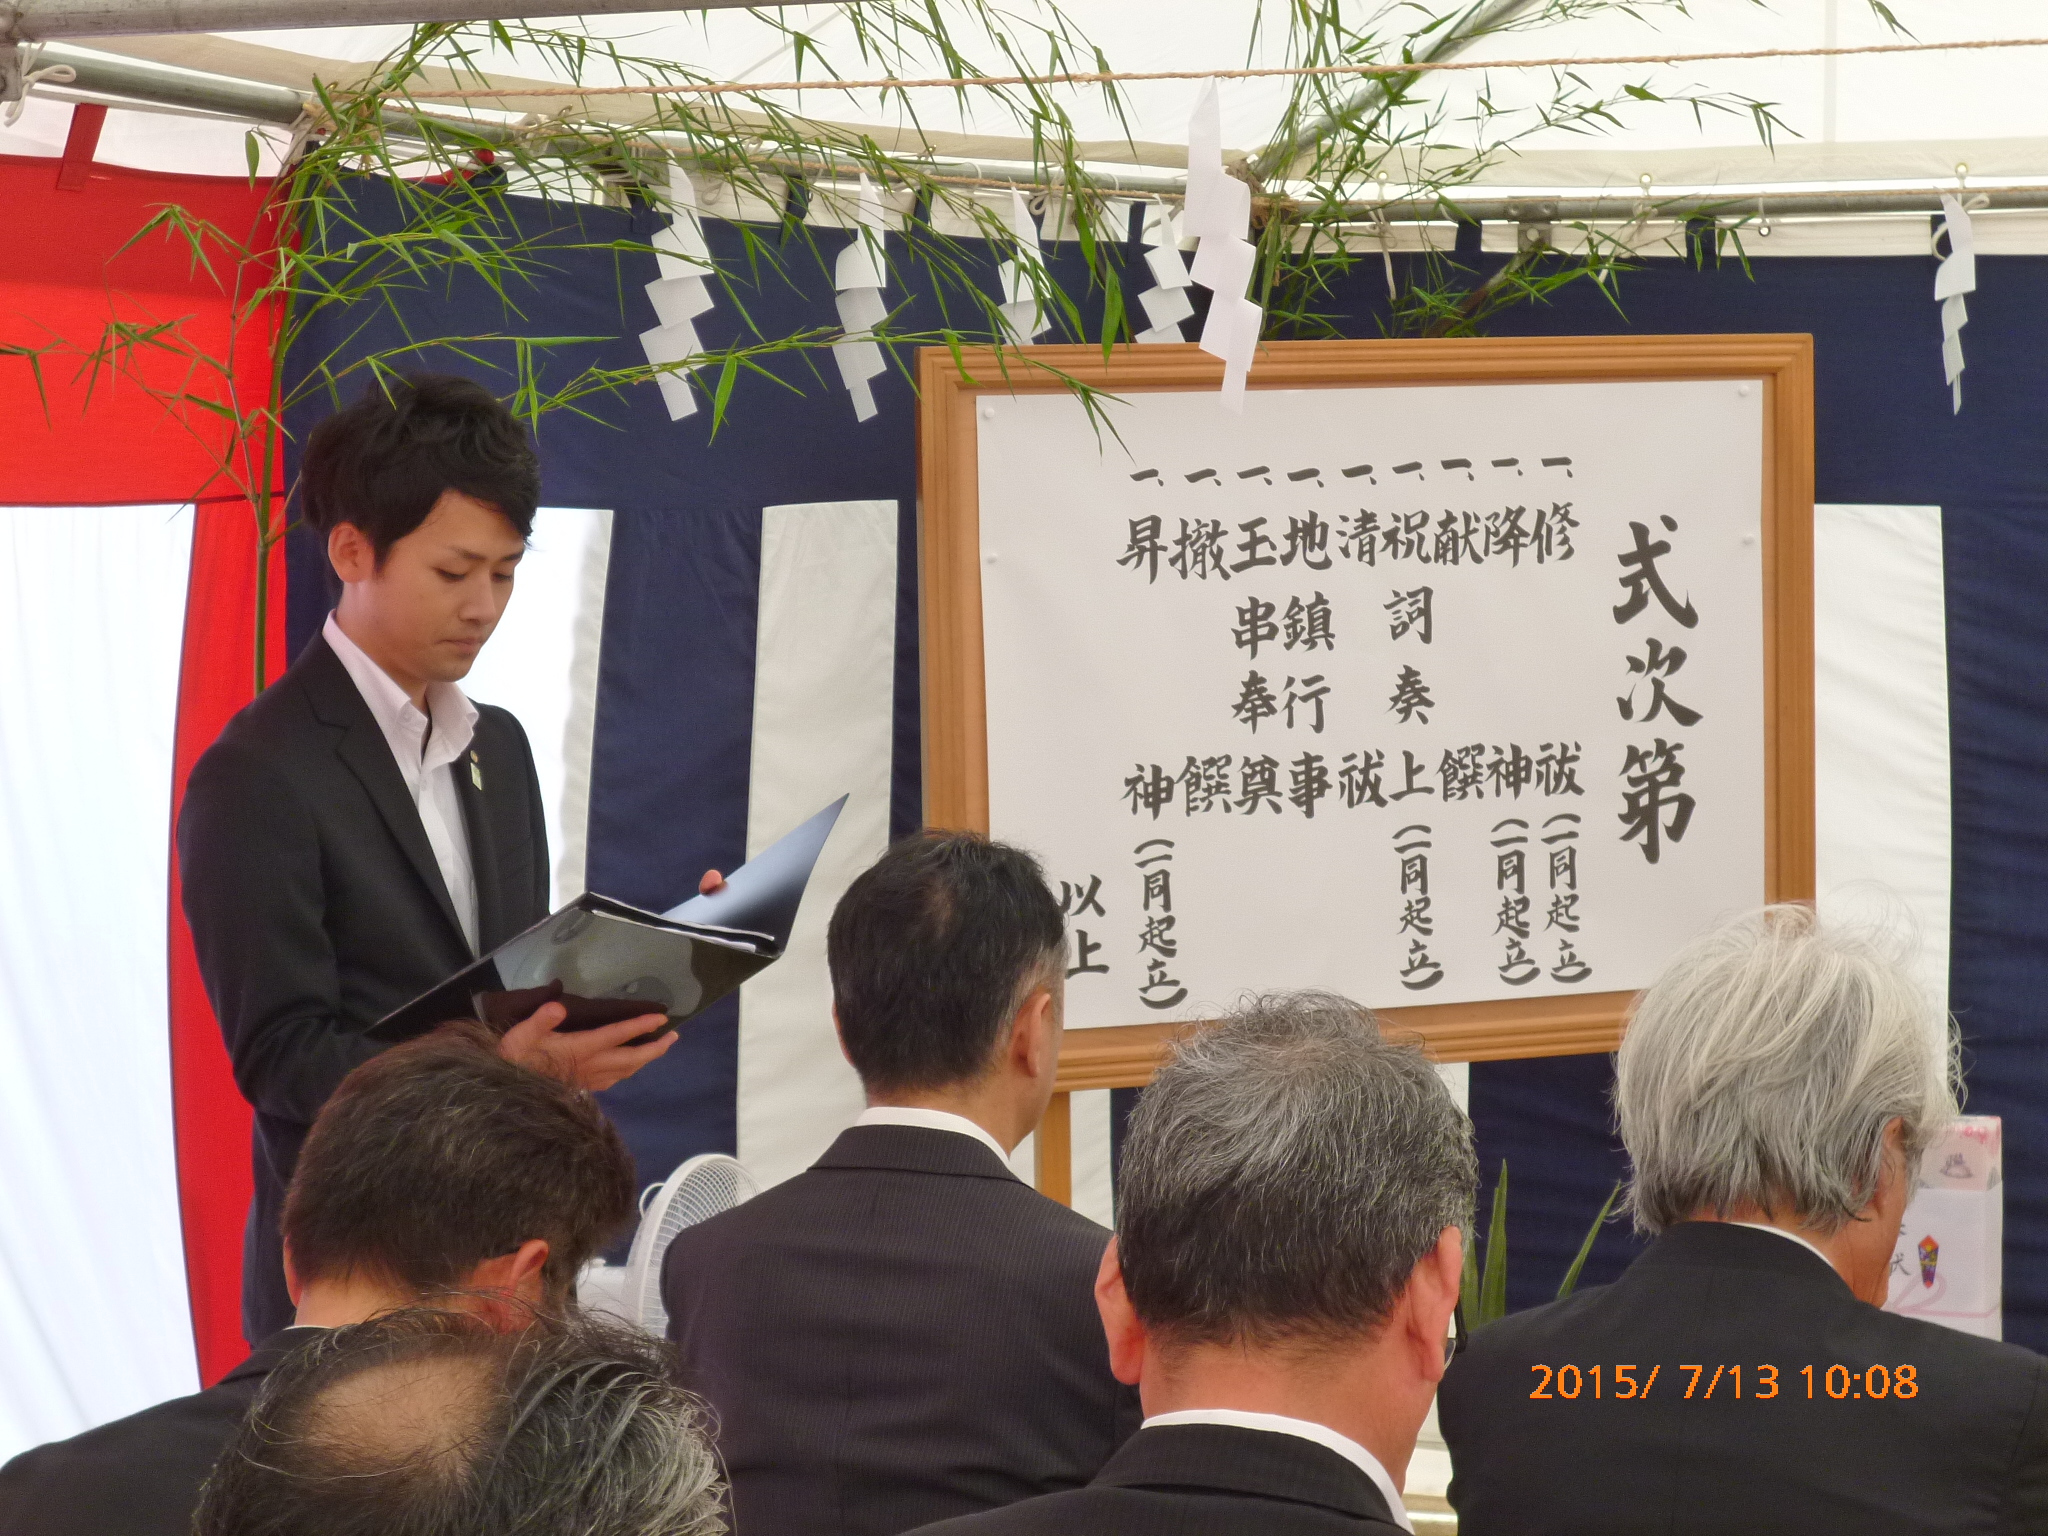 式次第
一、修祓(一同起立)
一、降神(一同起立)
一、献饌
一、祝詞奏上(一同起立)
一、清祓
一、地鎮行事
一、玉串奉奠
一、撤饌
一、昇神(一同起立)
以上
2015/ 7/13 10:08